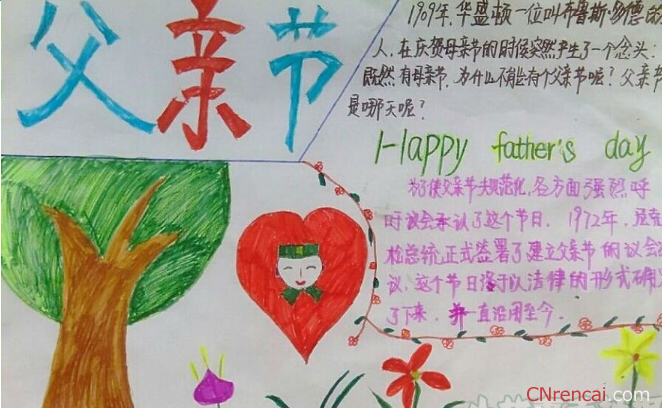 父亲节
1909年,华盛顿一位叫布鲁斯·多德的
人,在庆贺母亲节的时候突然产生了一个念头:
既然有母亲节,为什么不能有个父亲节呢?父亲节
是哪天呢?
Happy father's day
为了使父亲节规范化,各方面强烈呼
吁议会承认了这个节日。1972年,尼克
松总统正式签署了建立父亲节的议会
议,这个节日终于以法律的形式确
了下来,并一直沿用至今。
CNrencai.com